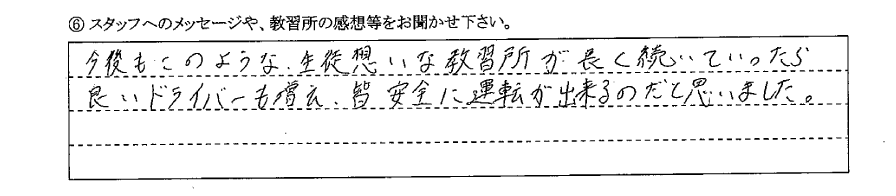 ⑥ スタッフへのメッセージや、教習所の感想等をお聞かせ下さい。
今後もこのような、生徒想いな教習所が長く続いていったら
良いドライバーも増え、皆安全に運転が出来るのだと思いました。